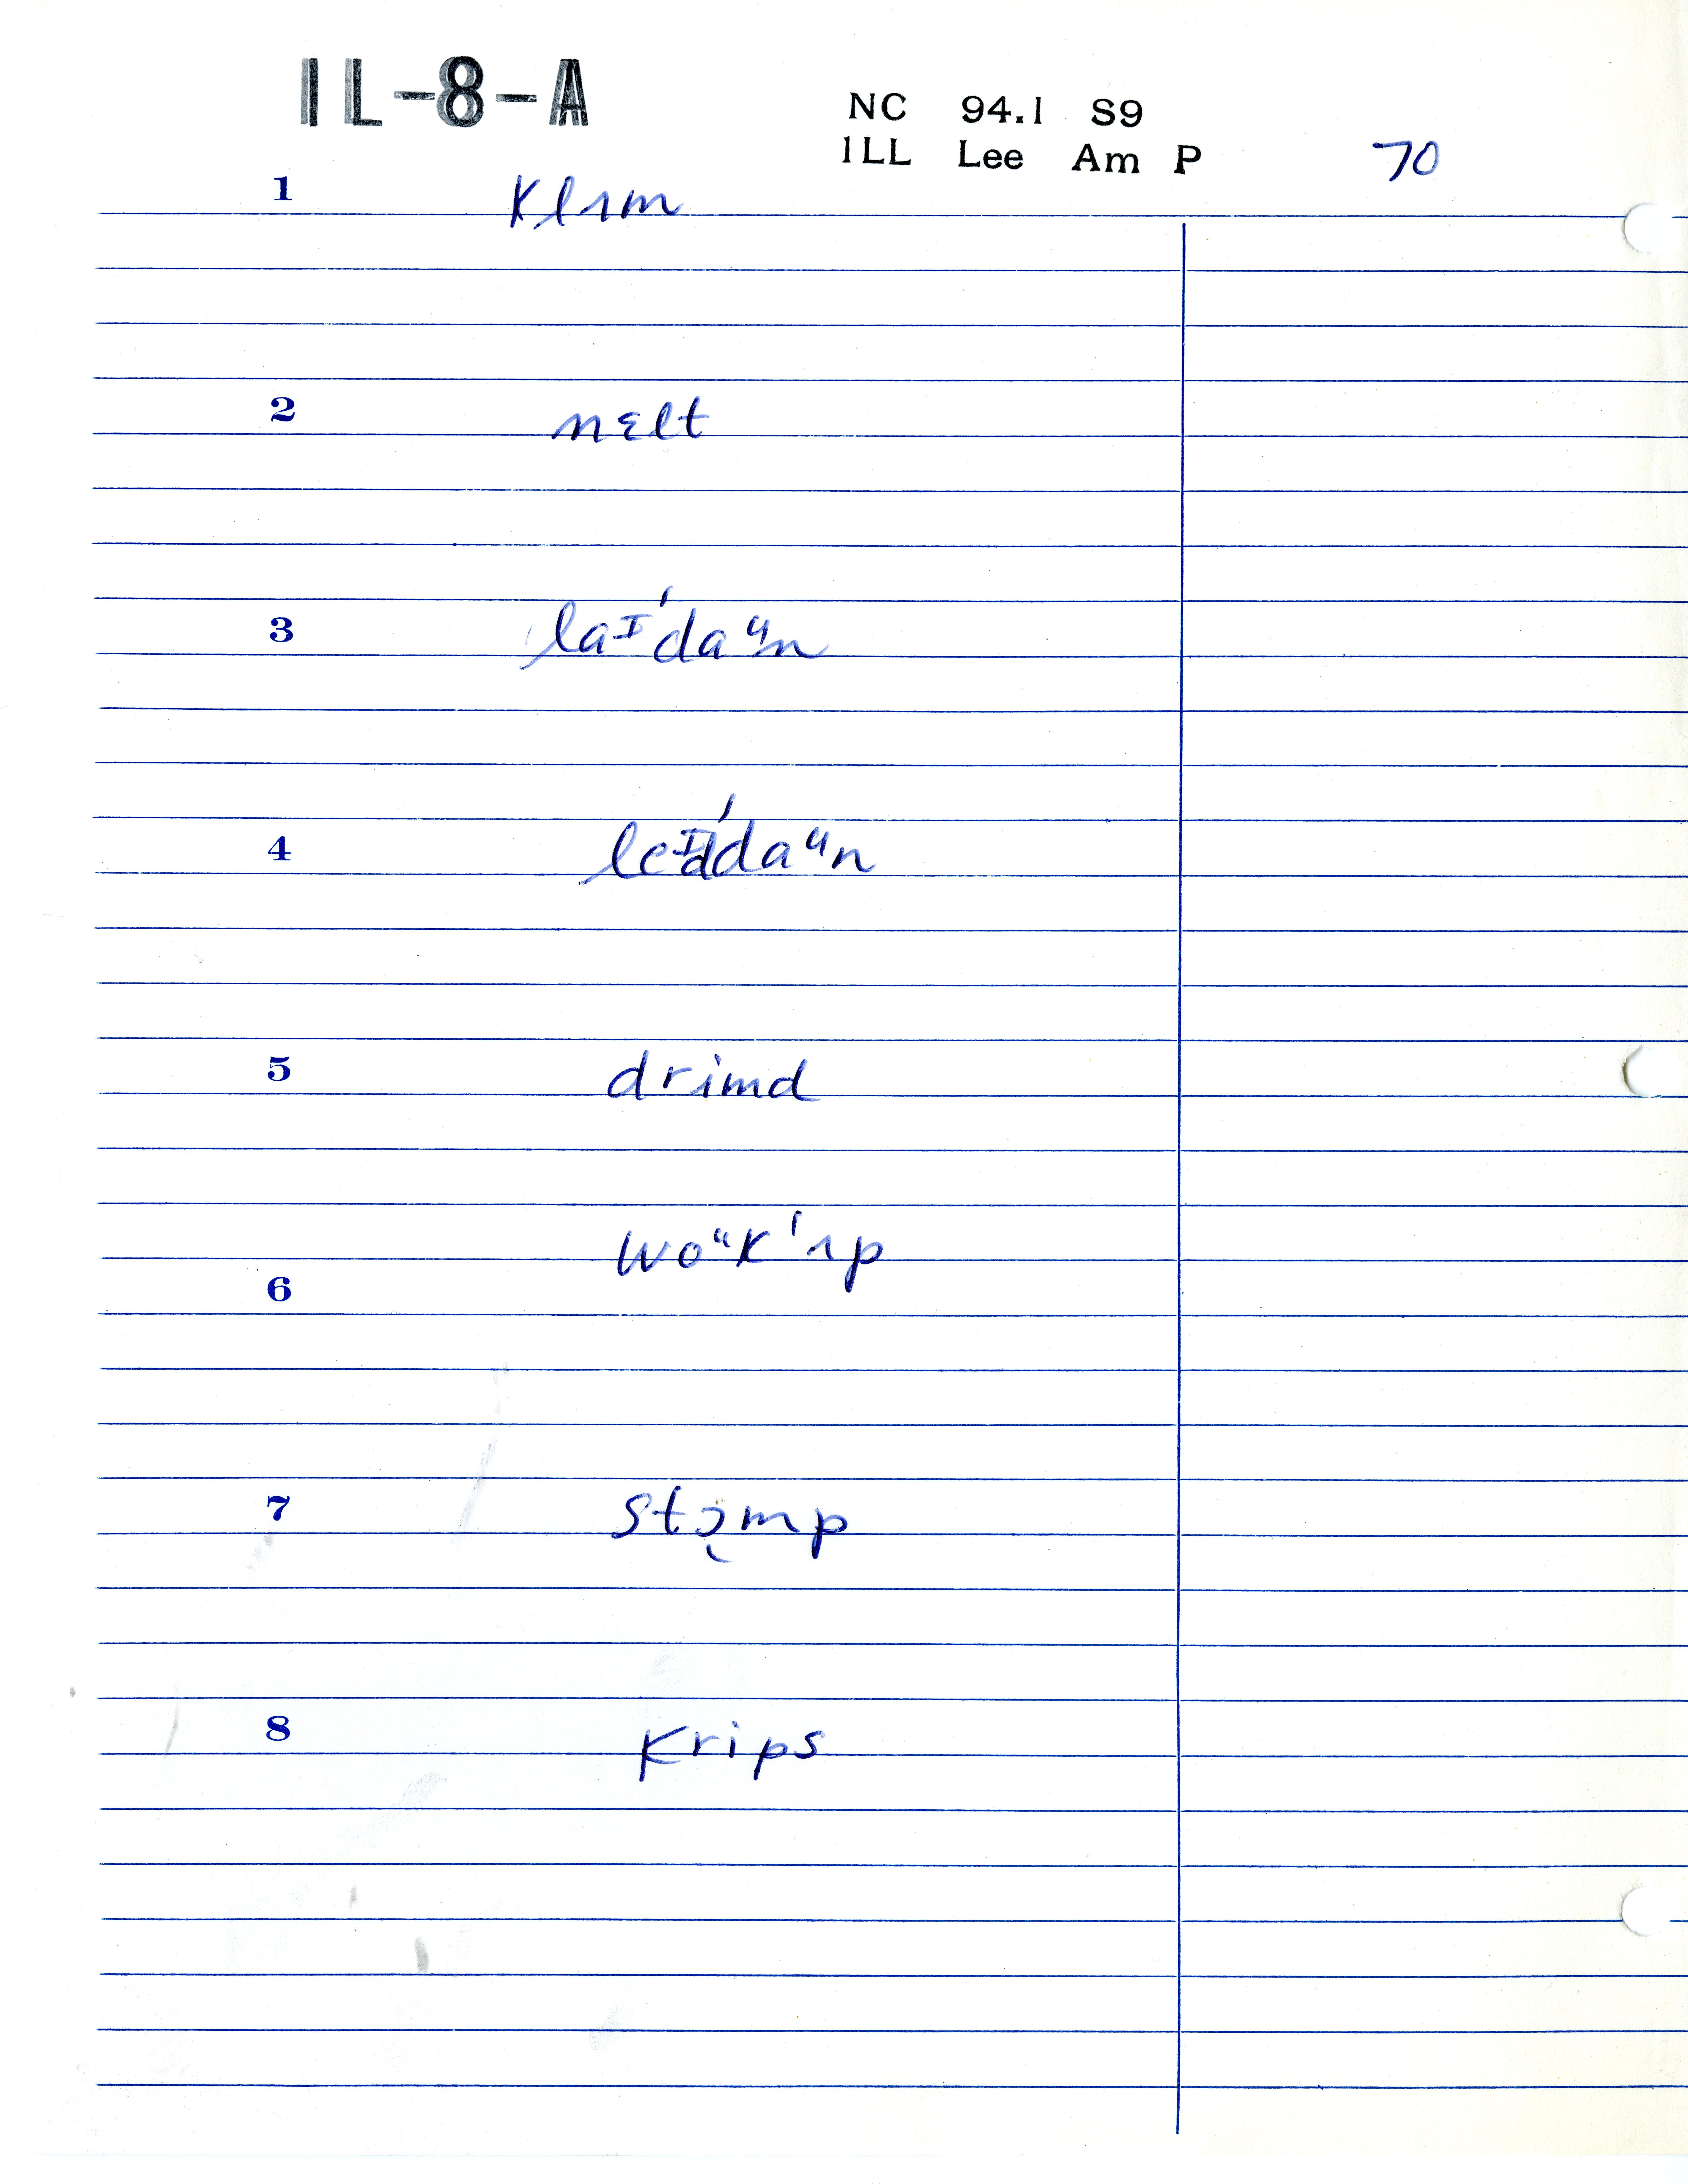 IL-8-A
NC 94.1 S9
ILL Lee Am P 70
1 klʌm
2 nɛlt
3 laᴵ'daᵘn
4 leᴵd'daᵘn
5 drimd
6 woᵘk'ʌp
7 stɔmp
8 krips